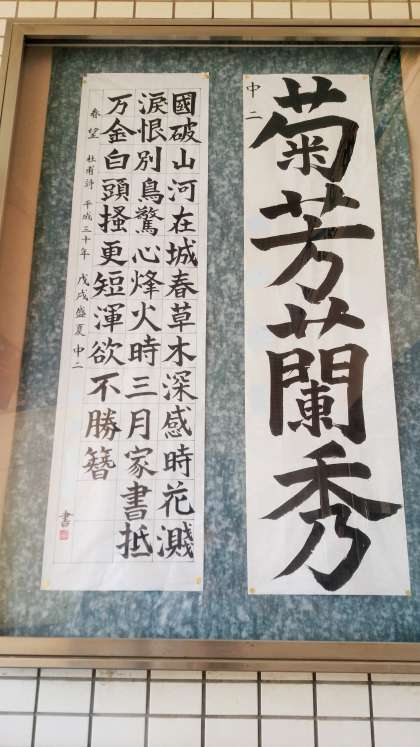 菊芳蘭秀
中二
國破山河在城春草木深感時花濺
淚恨別鳥驚心烽火時三月家書抵
万金白頭搔更短渾欲不勝簪
春望 杜甫詩 平成三十年 戊戌盛夏 中二
書